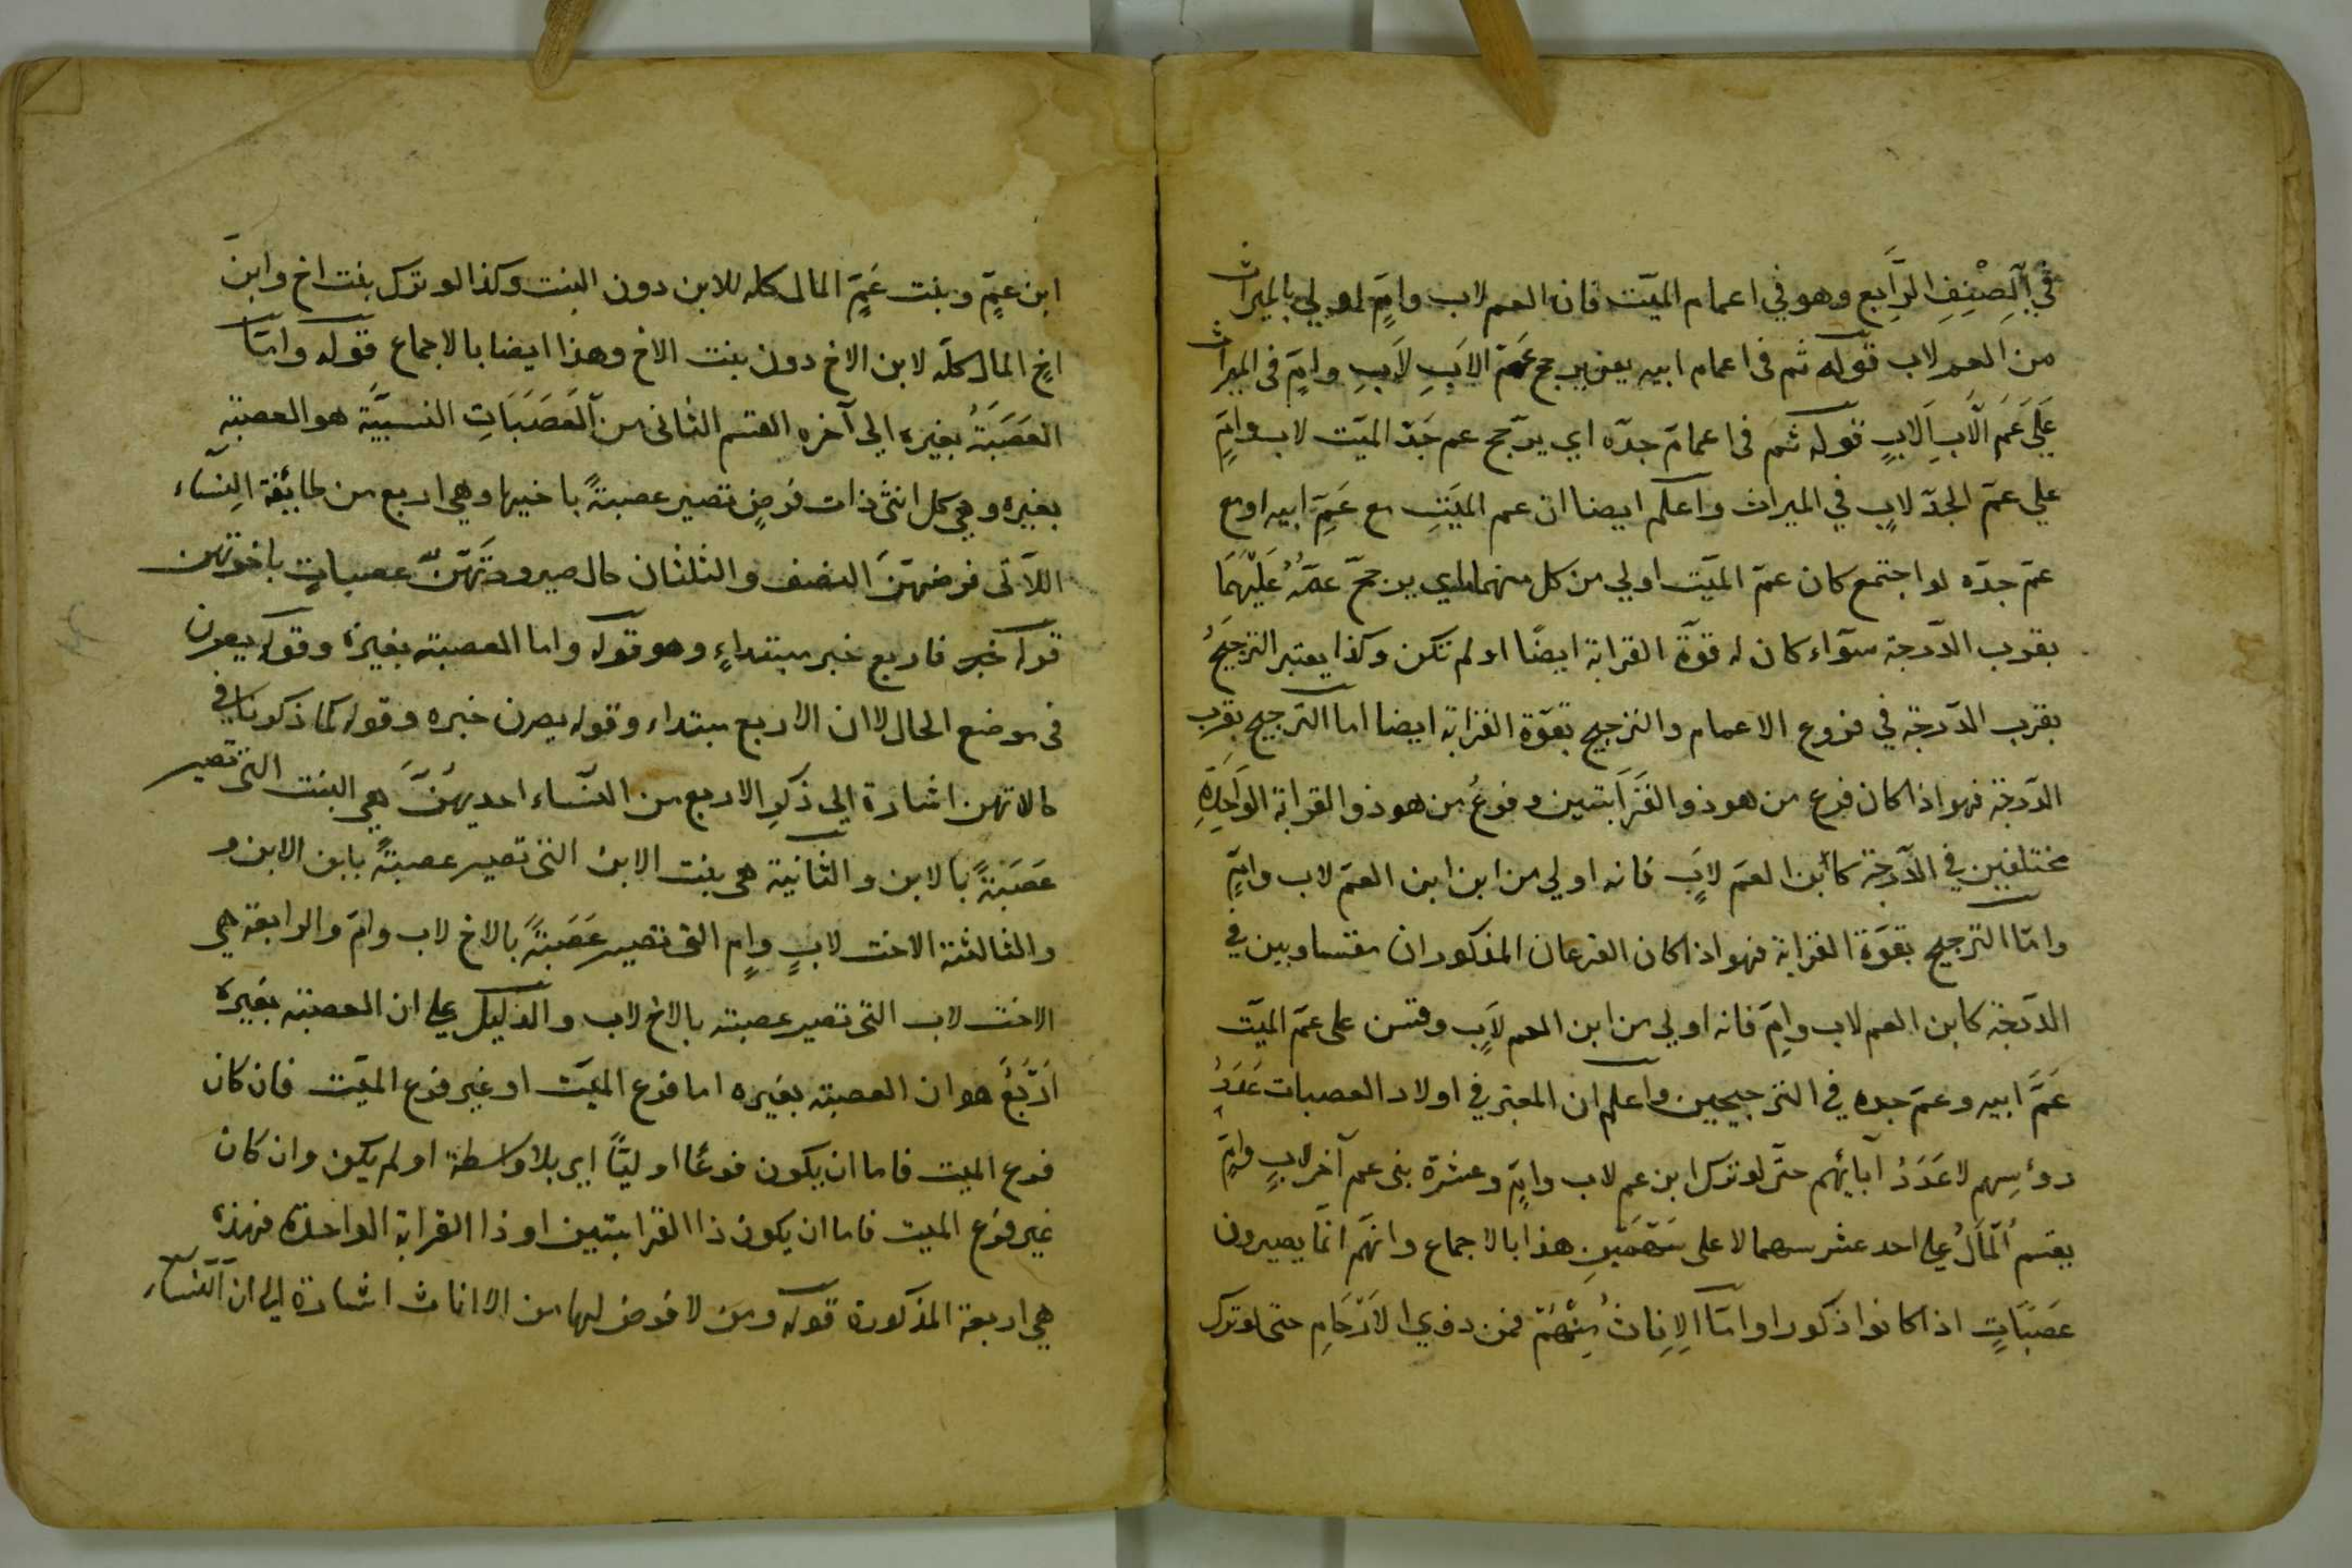 في الصِّنِفِ الرَّابع وهو في اعمام الميّت فان العم لاب وامٍّ اولي بالميراث
من العم لاب قوله ثم في اعمام ابيه يعني يرجح عَمّ الاَبِ لاَبِ وامٍّ في الميراث
عَلَي عَمَ الَابِ لَابٍ قوله ثم في اعمامَ جدّه اي يرّجح عم جَدّ الميّت لاب وامٍّ
علي عمّ الجدّ لابٍ في الميراث واعلم ايضا ان عم الميَتِ مع عَمِّ ابيه او مع
عمّ جدّه لو اجتمع كان عمّ الميّت اولي من كل منهما اي يرجحّ عمّهُ عَلَيْهَمَا
بقرب الدّرجة سوآء كان له قوّة القرابة ايضًا او لم تكن وكذا يعتبر الترجيحُ
بقرب الدّرجة في فروع الاعمام والترجيح بقوّة القرابة ايضا اما الترجيح بقرب
الدّرجة فهو اذا كان فرع من هو ذو القَرَابتين وفرعُ من هو ذو القرابة الوَاحِدَةِ
مختلفين في الدّرجة كابن العمّ لابٍ فانه اولي من ابن ابن العمّ لاب وامٍّ
وامّا الترجيح بقوّة القرابة فهو اذا كان الفرعان المذكوران متساويين في
الدّرجة كابن العم لاب وامٍّ فانه اولي من ابن العم لابٍ وقس علی عمّ الميّت
عَمَّ ابيه وعمّ جده في الترجيحين واعلم ان المعتبر في اولاد العصبات عَدَدُ
رؤسِهم لا عَدَدُ آبائهم حتّی لو ترك ابن عم لاب وامٍّ وعشرة بنی عم آخر لابٍ وامٍّ
يقسم المَالُ علی احد عشر سهما لا علی سَهْمَيْنِ هذا بالاجماع وانهّم انّما يصيرون
عَصَبَاتٍ اذا كانوا ذكورا وامّا الِانِاث مِنْهُمْ فمن ذوي الاَرْحَامِ حتی لو ترك
ابن عمٍّ وبنت عَمٍّ المال كله للابن دون البنت وكذا لو ترك بنت اخ وابن
اخٍ المال كلّه لابن الاخ دون بنت الاخ وهذا ايضا بالاجماع قوله وامّا
العَصَبَةُ بغيره الي آخره القسم الثانی من العَصَبَاتِ النسبيَّة هو العصبة
بغيره وهي كل انثی ذات فرضٍ تصير عصبةً باخيها وهي اربع من طائفة النِسَاء
اللآتی فرضهّنَ النصف والثلثان حال صيرورتَهّنّ عصباتٍ باخوتهن
قوله خبر فاربع خبر مبتداءٍ وهو قوله واما العصبة بغيره وقوله يصرن
فی موضع الحال لا ان الاربع مبتداء وقوله يصرن خبره وقوله كما ذكرنا في
حالاتهن اشارة الي ذكرِ الاربع من النّساء احديهُنَّ هي البنت التی تصير
عَصَبَةً بالابن والثانية هی بنت الابن التی تصير عصبةً بابن الابن و
والثالثة الاخت لابٍ وامٍ التی تصير عَصَبَةً بالاخ لاب وامّ والرابعة هي
الاخت لاب التی تصير عصبة بالاخ لاب والدليل علي ان العصبة بغيره
اَرْبَعُ هو ان العصبة بغيره اما فرع الميّت او غير فرع الميّت فان كان
فرع الميت فاما ان يكون فرعًا اوليًّا اي بلا واسطة او لم يكن وان كان
غير فرع الميت فاما ان يكون ذا القرابتين او ذا القرابة الواحدة فهذه
هي اربعة المذكورة قوله ومن لا فرض لها من الاناث اشارة الي ان النساء